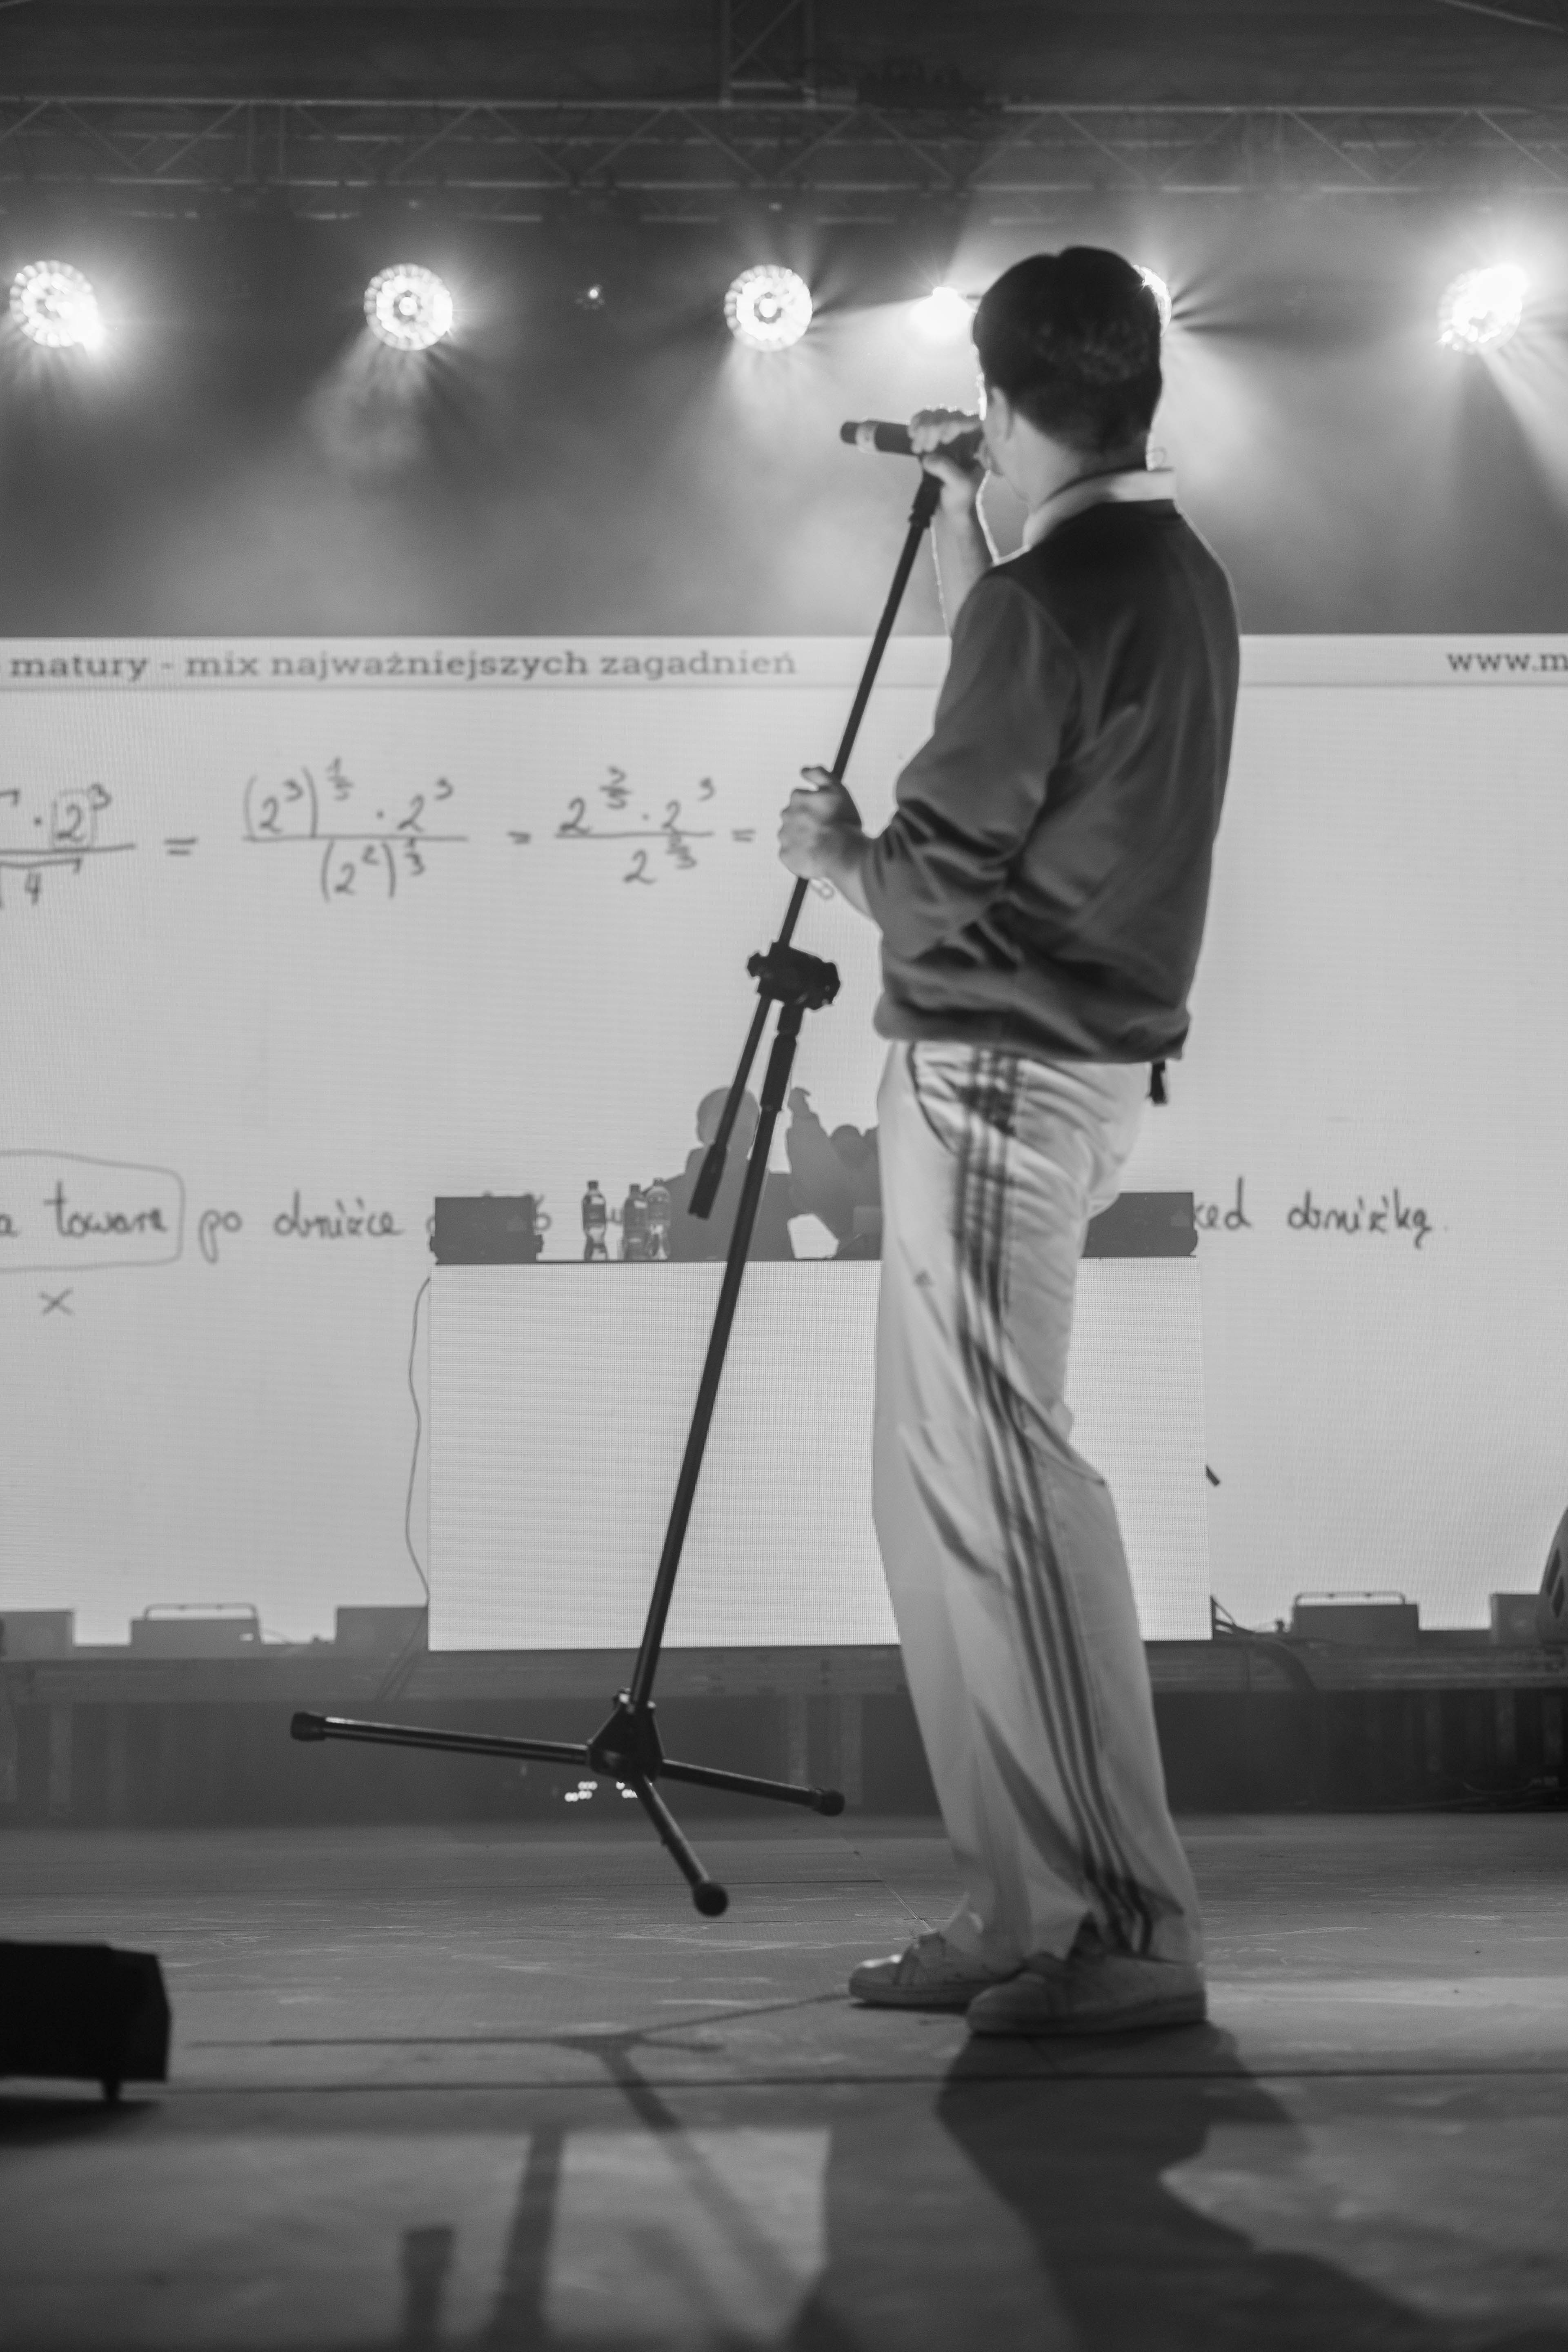 matury - mix najważniejszych zagadnień www.m
· 2³ / √4 = (2³)^(1/5) · 2³ / (2²)^(1/3) = 2^(3/5) · 2³ / 2^(2/3) =
a towaru po obniżce zed obniżką.
x